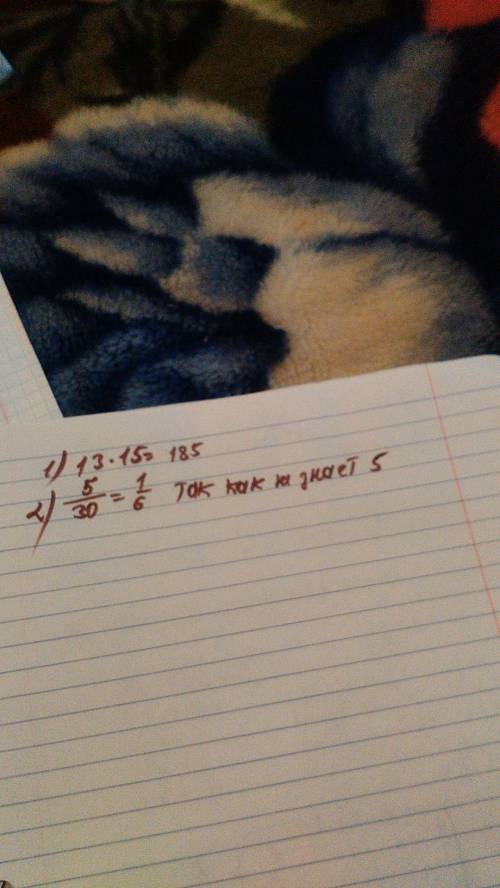 1) 13·15= 185
2) 5/30 = 1/6 так как не знает 5